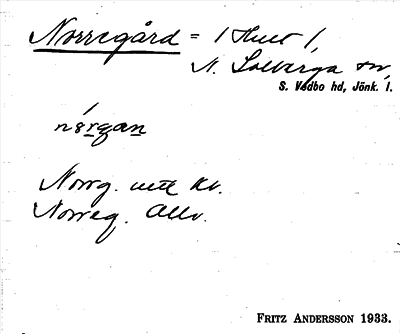 Norregård = 1 Hult 1,
N. Solberga sn,
S. Vedbo hd, Jönk. l.
Norrg. utt Kv.
Norreg. Allv.
FRITZ ANDERSSON 1933.